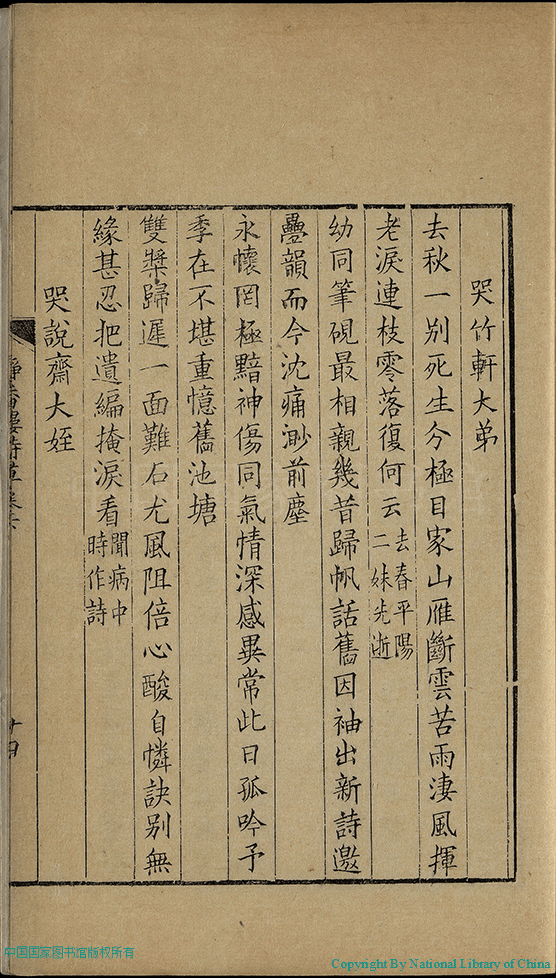 哭竹軒大弟
去秋一別死生分極目家山雁斷雲苦雨淒風揮
老淚連枝零落復何云去春平陽二妹先逝
幼同筆硯最相親幾昔歸帆話舊因袖出新詩邀
疊韻而今沈痛渺前塵
永懷罔極黯神傷同氣情深感異常此日孤吟予
季在不堪重憶舊池塘
雙槳歸遲一面難石尤風阻倍心酸自憐訣別無
緣甚忍把遺編掩淚看聞病中時作詩
哭說齋大姪
中国国家图书馆版权所有
Copyright By National Library of China